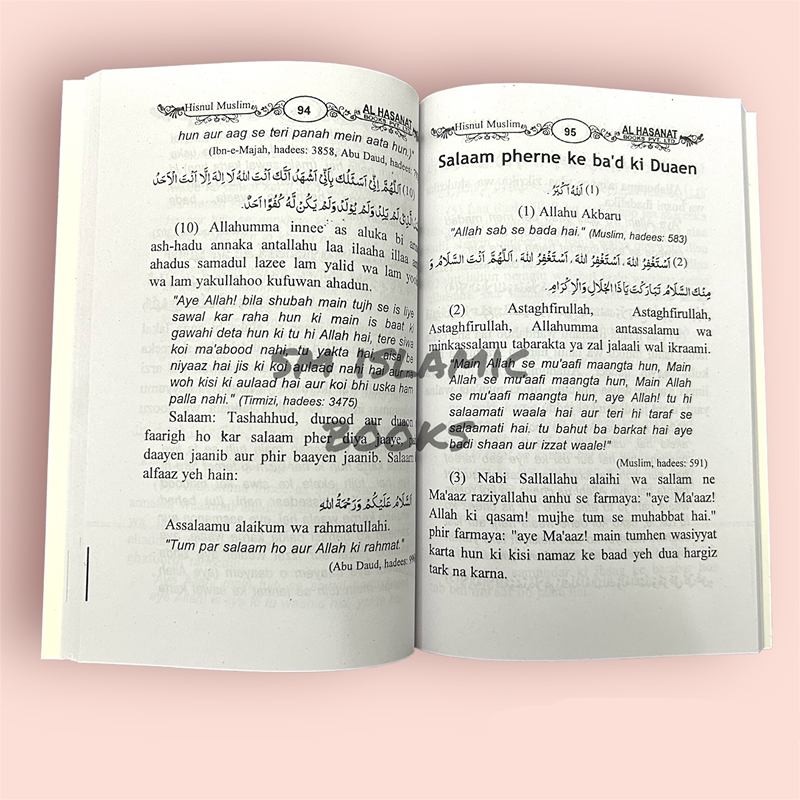 Hisnul Muslim 94 AL HASANAT
BOOKS PVT. LTD.
hun aur aag se teri panah mein aata hun.)"
(Ibn-e-Majah, hadees: 3858, Abu Daud, hadees:
(10) اَللّٰهُمَّ اِنِّیْ اَسْئَلُكَ بِاَنِّیْ اَشْهَدُ اَنَّكَ اَنْتَ اللّٰهُ لَا اِلٰهَ اِلَّا اَنْتَ الْاَحَدُ
الَّذِیْ لَمْ یَلِدْ وَلَمْ یُوْلَدْ وَلَمْ یَكُنْ لَّهٗ كُفُوًا اَحَدٌ.
(10) Allahumma innee as aluka bi
ash-hadu annaka antallahu laa ilaaha illaa
ahadus samadul lazee lam yalid wa lam
wa lam yakullahoo kufuwan ahadun.
"Aye Allah! bila shubah main tujh se is liye
sawal kar raha hun ki main is baat ki
gawahi deta hun ki tu hi Allah hai, tere siwa
koi ma'abood nahi, tu yakta hai, aisa be
niyaaz hai jis ki koi aulaad nahi hai aur na
woh kisi ki aulaad hai aur koi bhi uska ham
palla nahi." (Tirmizi, hadees: 3475)
Salaam: Tashahhud, durood aur duaon
faarigh ho kar salaam pher diya jaaye,
daayen jaanib aur phir baayen jaanib. Salaam
alfaaz yeh hain:
اَلسَّلَامُ عَلَیْكُمْ وَرَحْمَةُ اللّٰهِ
Assalaamu alaikum wa rahmatullahi.
"Tum par salaam ho aur Allah ki rahmat."
(Abu Daud, hadees:
Hisnul Muslim 95 AL HASANAT
BOOKS PVT. LTD
Salaam pherne ke ba'd ki Duaen
(1) اَللّٰهُ اَكْبَرُ
(1) Allahu Akbaru
"Allah sab se bada hai." (Muslim, hadees: 583)
(2) اَسْتَغْفِرُ اللّٰهَ، اَسْتَغْفِرُ اللّٰهَ، اَسْتَغْفِرُ اللّٰهَ، اَللّٰهُمَّ اَنْتَ السَّلَامُ وَ
مِنْكَ السَّلَامُ تَبَارَكْتَ یَاذَا الْجَلَالِ وَالْاِكْرَامِ.
(2) Astaghfirullah, Astaghfirullah,
Astaghfirullah, Allahumma antassalamu wa
minkassalamu tabarakta ya zal jalaali wal ikraami.
"Main Allah se mu'aafi maangta hun, Main
Allah se mu'aafi maangta hun, Main Allah
se mu'aafi maangta hun, aye Allah! tu hi
salaamati waala hai aur teri hi taraf se
salaamati hai. tu bahut ba barkat hai aye
badi shaan aur izzat waale!"
(Muslim, hadees: 591)
(3) Nabi Sallallahu alaihi wa sallam ne
Ma'aaz raziyallahu anhu se farmaya: "aye Ma'aaz!
Allah ki qasam! mujhe tum se muhabbat hai."
phir farmaya: "aye Ma'aaz! main tumhen wasiyyat
karta hun ki kisi namaz ke baad yeh dua hargiz
tark na karna.
SM ISLAMIC
BOOKS